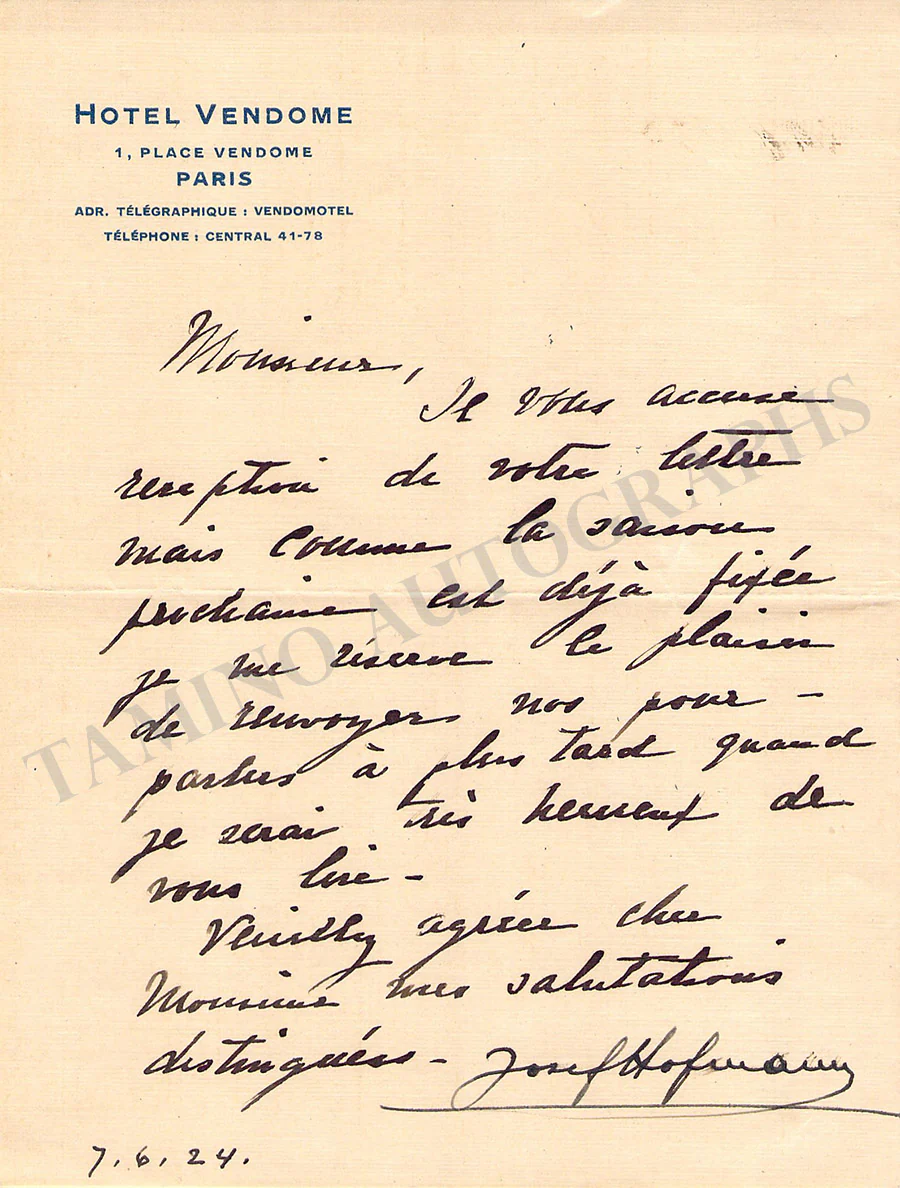 HOTEL VENDOME
1, PLACE VENDOME
PARIS
ADR. TÉLÉGRAPHIQUE : VENDOMOTEL
TÉLÉPHONE : CENTRAL 41-78
Monsieur,
Je vous accuse
reception de votre lettre
mais comme la saison
prochaine est déjà fixée
je me réserve le plaisir
de renvoyer nos pour-
parlers à plus tard quand
je serai très heureux de
vous lire -
Veuillez agréer cher
Monsieur mes salutations
distinguées - Josef Hofmann
7.6.24.
TAMINO AUTOGRAPHS